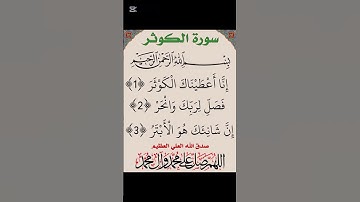 سورة الكوثر
بِسْمِ اللَّهِ الرَّحْمَنِ الرَّحِيمِ
إِنَّا أَعْطَيْنَاكَ الْكَوْثَرَ ﴿1﴾
فَصَلِّ لِرَبِّكَ وَانْحَرْ ﴿2﴾
إِنَّ شَانِئَكَ هُوَ الْأَبْتَرُ ﴿3﴾
صدق الله العلي العظيم
اللهم صل على محمد وآل محمد